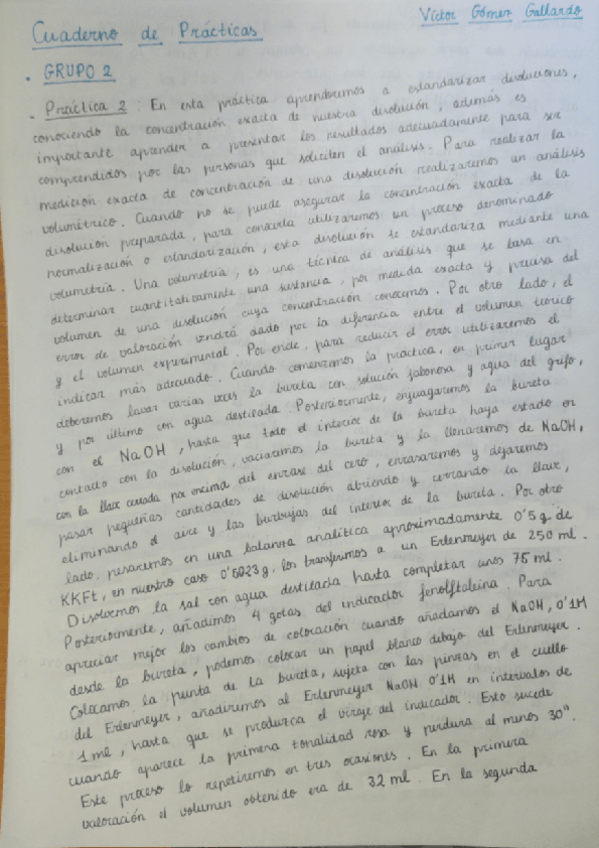 Víctor Gómez Gallardo
Cuaderno de Prácticas
· GRUPO 2
- Práctica 2 : En esta práctica aprenderemos a estandarizar disoluciones,
conociendo la concentración exacta de nuestra disolución, además es
importante aprender a presentar los resultados adecuadamente para ser
comprendidos por las personas que soliciten el análisis. Para realizar la
medición exacta de concentración de una disolución realizaremos un análisis
volumétrico. Cuando no se puede asegurar la concentración exacta de la
disolución preparada, para conocerla utilizaremos un proceso denominado
normalización o estandarización, esta disolución se estandariza mediante una
volumetría. Una volumetría, es una técnica de análisis que se basa en
determinar cuantitativamente una sustancia, por medida exacta y precisa del
volumen de una disolución cuya concentración conocemos. Por otro lado, el
error de valoración vendrá dado por la diferencia entre el volumen teórico
y el volumen experimental. Por ende, para reducir el error utilizaremos el
indicar más adecuado. Cuando comenzamos la práctica, en primer lugar
deberemos lavar varias veces la bureta con solución jabonosa y agua del grifo,
y por último con agua destilada. Posteriormente, enjuagaremos la bureta
con el NaOH, hasta que todo el interior de la bureta haya estado en
contacto con la disolución, vaciaremos la bureta y la llenaremos de NaOH,
con la llave cerrada por encima del enrase del cero, enrasaremos y dejaremos
pasar pequeñas cantidades de disolución abriendo y cerrando la llave,
eliminando el aire y las burbujas del interior de la bureta. Por otro
lado, pesaremos en una balanza analítica aproximadamente 0'5g de
KKFt, en nuestro caso 0'5023g, los transferimos a un Erlenmeyer de 250 ml.
Disolvemos la sal con agua destilada hasta completar unos 75 ml.
Posteriormente, añadimos 4 gotas del indicador fenolftaleina. Para
apreciar mejor los cambios de coloración cuando añadamos el NaOH, 0'1M
desde la bureta, podemos colocar un papel blanco debajo del Erlenmeyer.
Colocamos la punta de la bureta, sujeta con las pinzas en el cuello
del Erlenmeyer, añadiremos al Erlenmeyer NaOH 0'1M en intervalos de
1 ml, hasta que se produzca el viraje del indicador. Esto sucede
cuando aparece la primera tonalidad rosa y perdura al menos 30".
Este proceso lo repetiremos en tres ocasiones. En la primera
valoración el volumen obtenido era de 32 ml. En la segunda